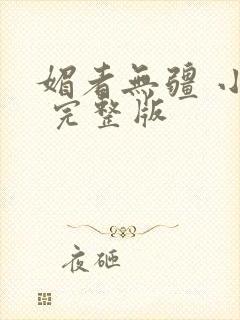 媚者無疆 小
完整版
夜砸